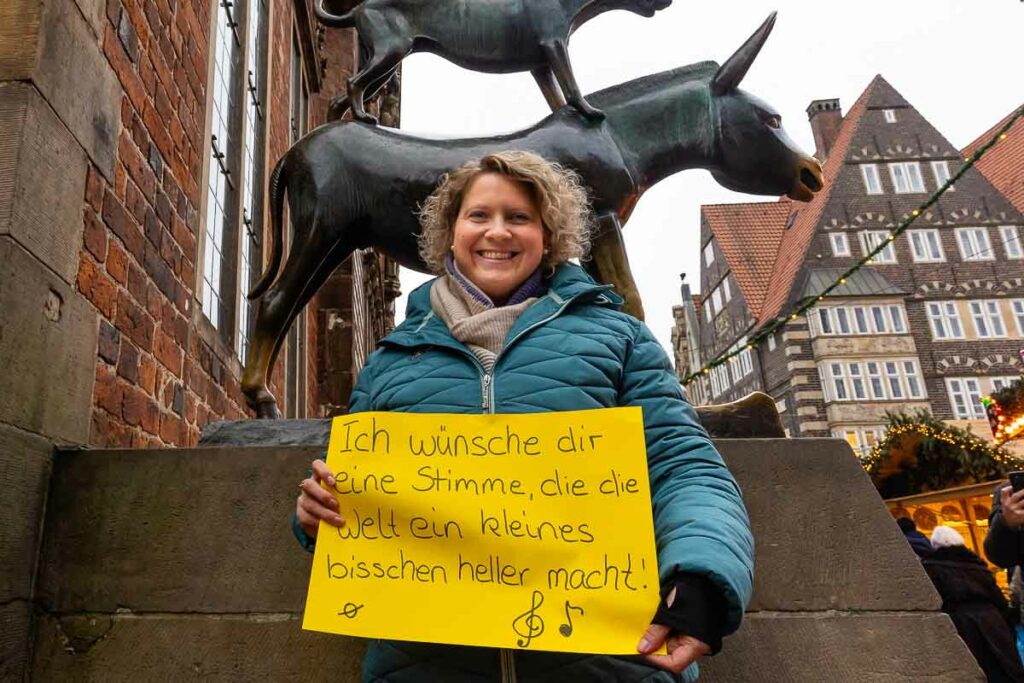 Ich wünsche dir
eine Stimme, die die
Welt ein kleines
bisschen heller macht!